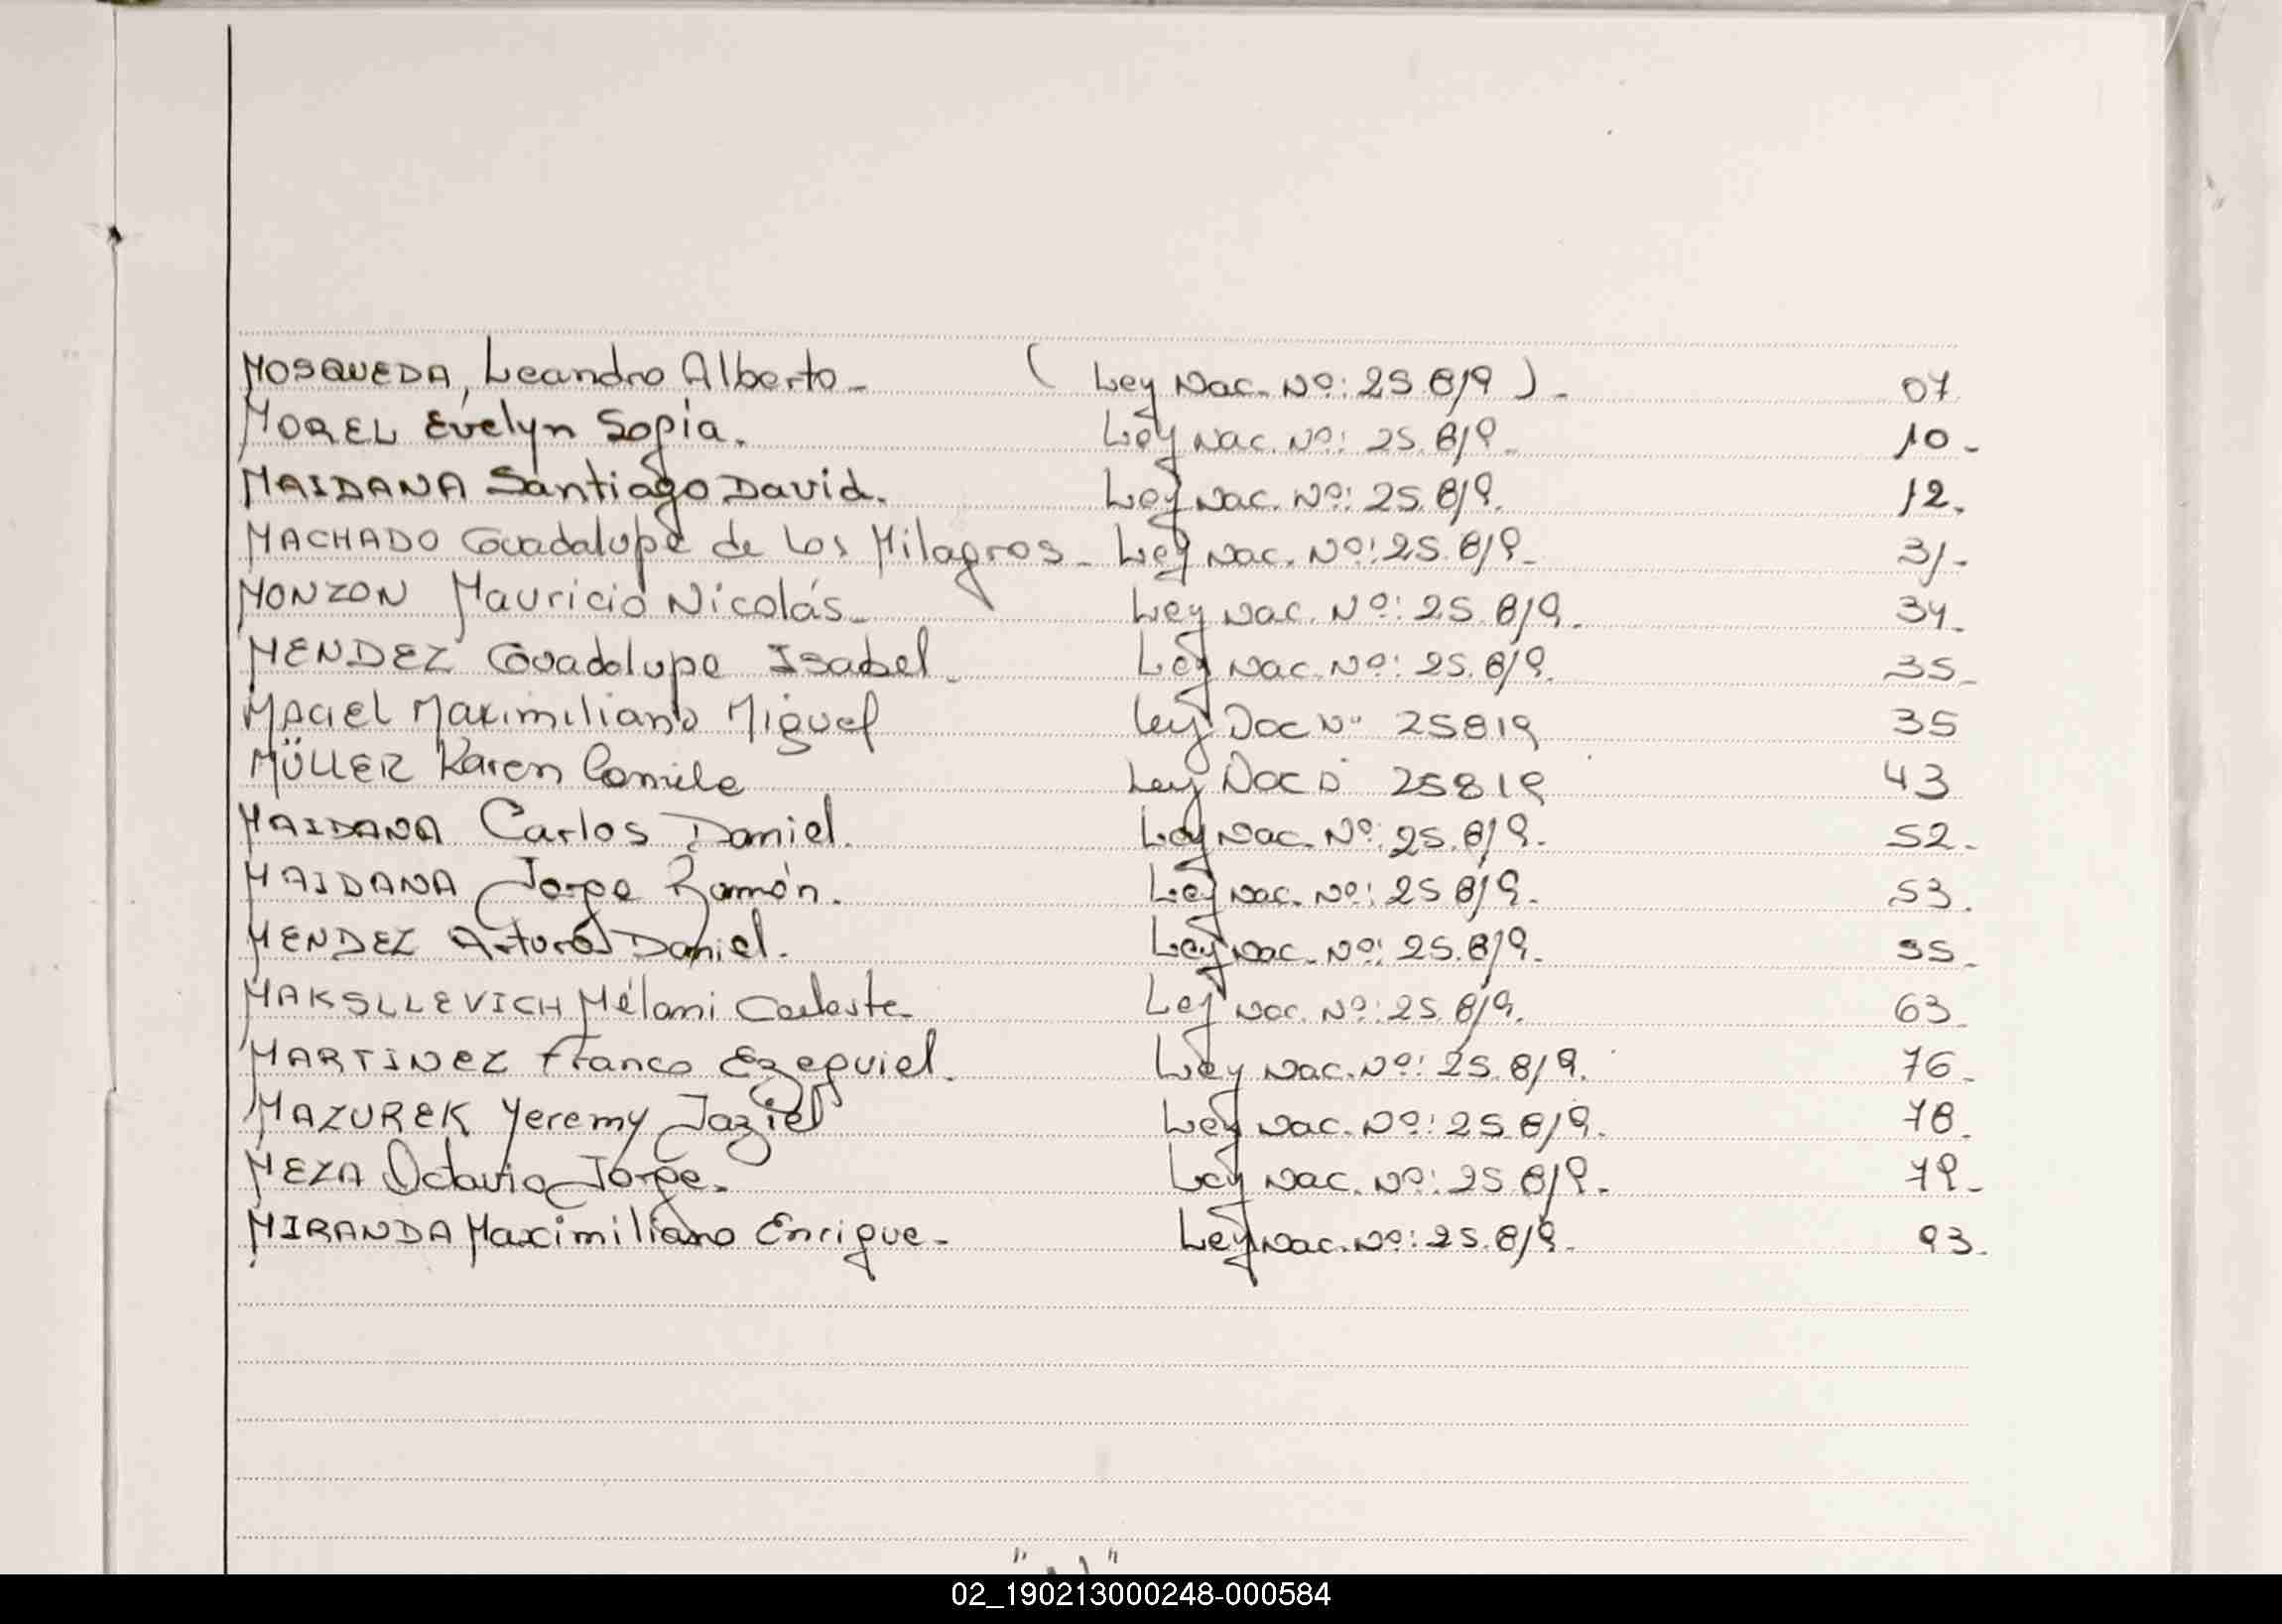 MOSQUEDA, Leandro Alberto - ( Ley Nac. Nº: 25.819 ) - 07
MOREL Evelyn Sofía. Ley Nac. Nº: 25.819 - 10 -
MAIDANA Santiago David. Ley Nac. Nº: 25.819. 12.
MACHADO Guadalupe de los Milagros - Ley Nac. Nº: 25.819 - 31 -
MONZON Mauricio Nicolás - Ley Nac. Nº: 25.819. 34.
MENDEZ Guadalupe Isabel - Ley Nac. Nº: 25.819. 35 -
MACIEL Maximiliano Miguel Ley Nac Nº 25819 35
MÜLLER Karen Camila Ley Nac Nº 25819 43
MAIDANA Carlos Daniel. Ley Nac. Nº: 25.819. 52.
MAIDANA Jorge Ramón. Ley Nac. Nº: 25.819. 53.
MENDEZ Arturo Daniel. Ley Nac. Nº: 25.819. 55 -
MAKSLLEVICH Mélani Celeste - Ley Nac. Nº: 25.819. 63 -
MARTINEZ Franco Ezequiel. Ley Nac. Nº: 25.819. 76 -
MAZUREK Yeremy Jaziel Ley Nac. Nº: 25.819. 78.
MEZA Octavio Jorge. Ley Nac. Nº: 25.819. 79 -
MIRANDA Maximiliano Enrique - Ley Nac. Nº: 25.819. 93.
02_190213000248-000584